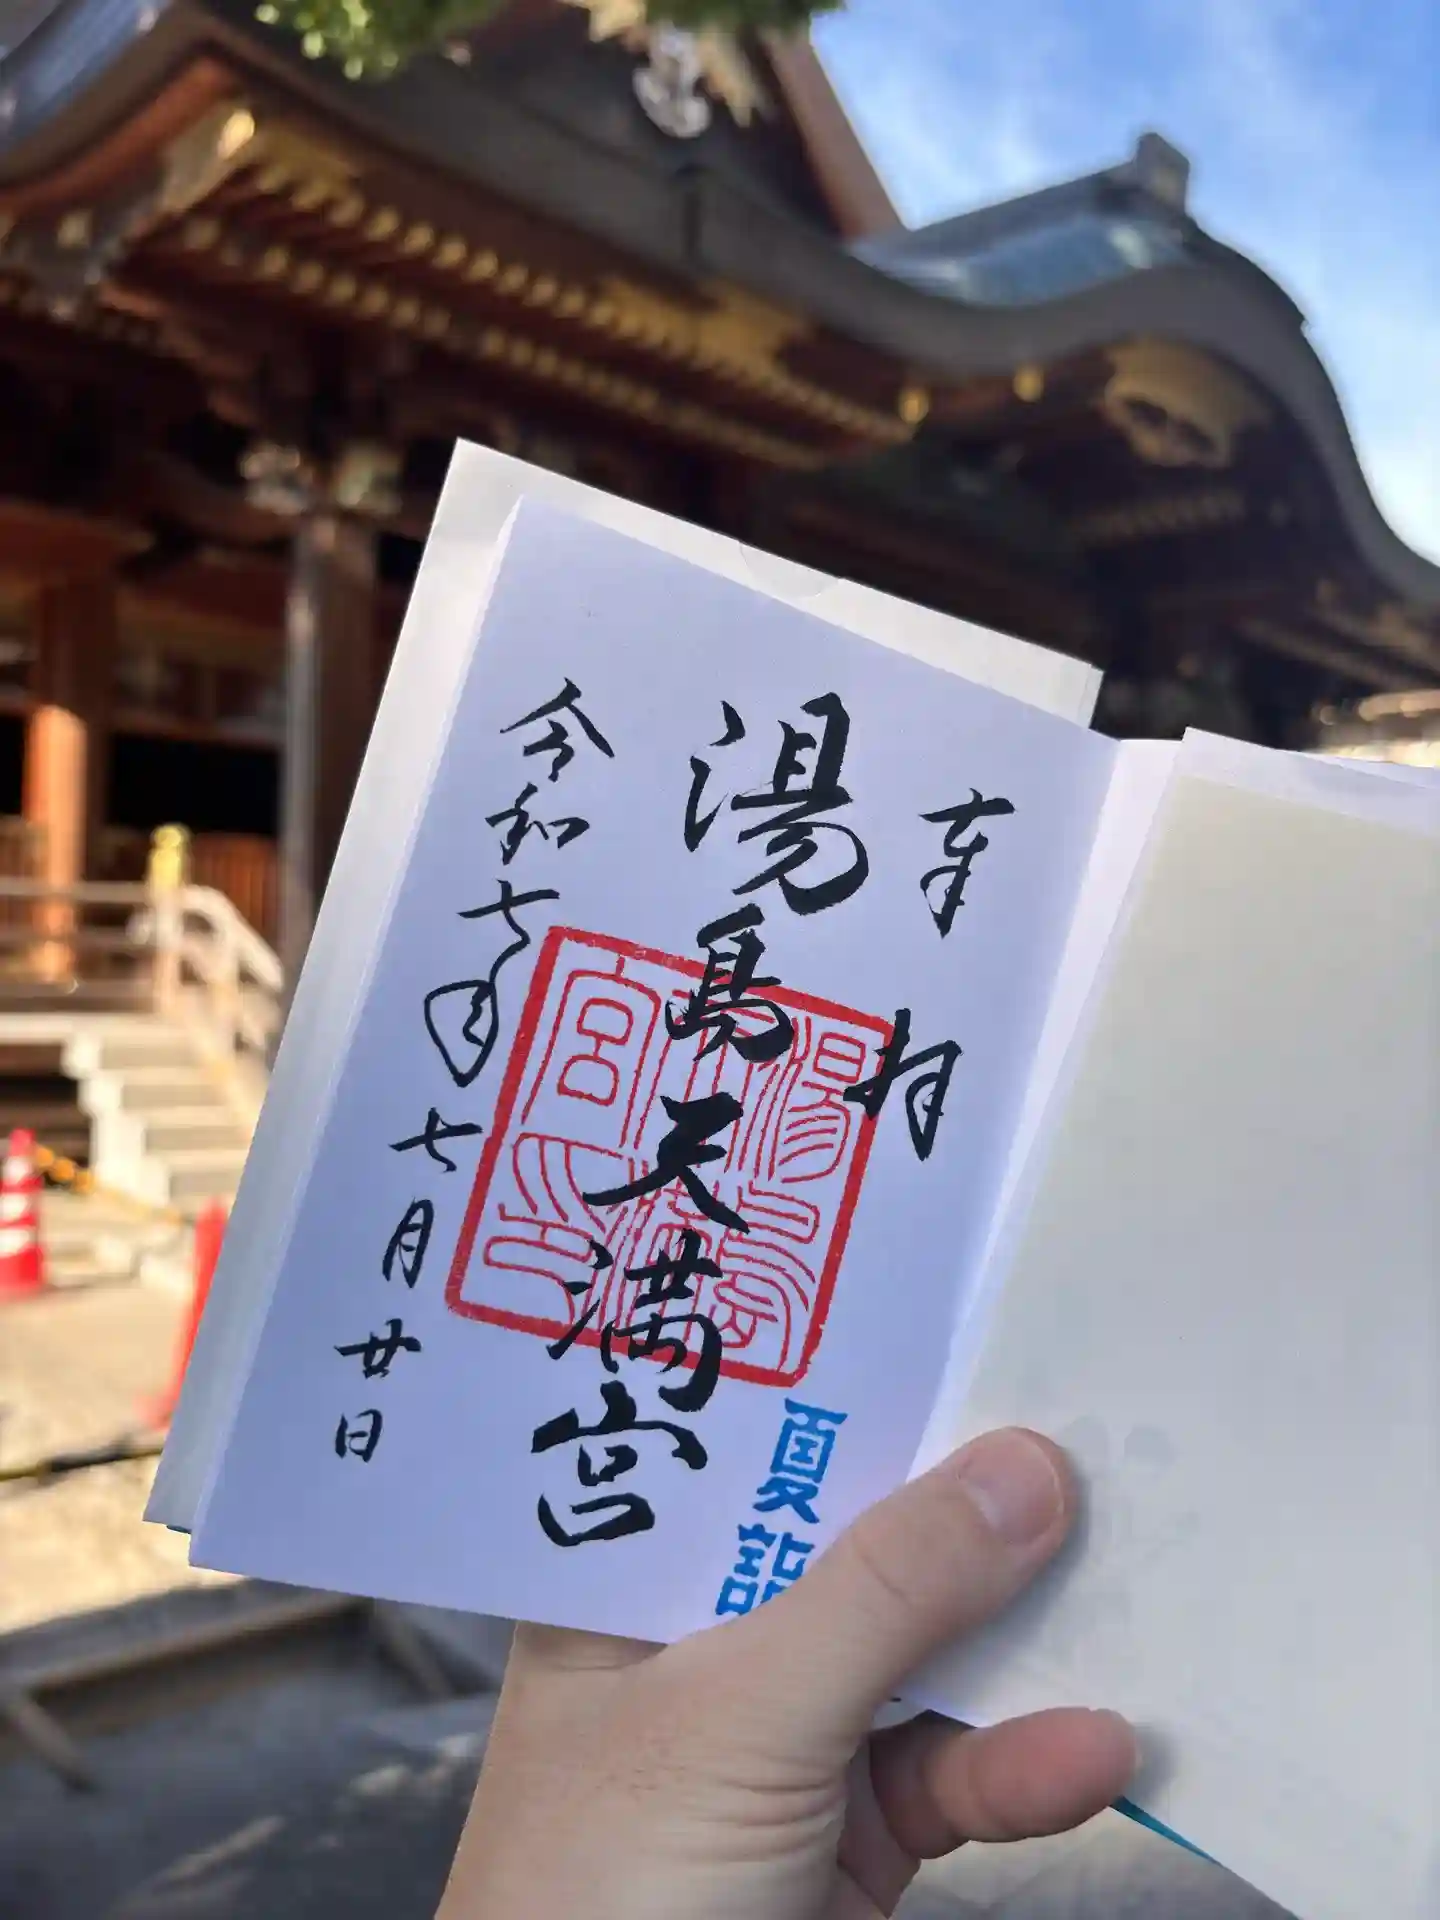 奉拝
湯島天満宮
令和七年七月廿日
湯島天満宮印
夏詣